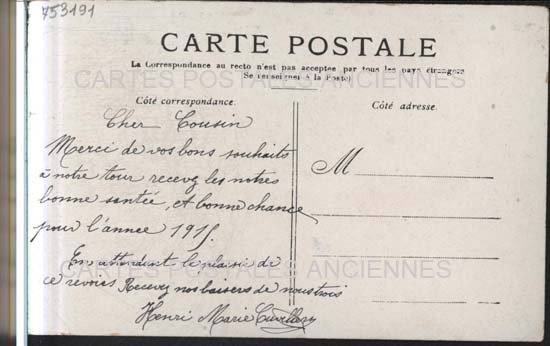 753191
CARTE POSTALE
La Correspondance au recto n'est pas acceptée par tous les pays étrangers
(Se renseigner à la Poste)
CARTES POSTALES ANCIENNES
Côté correspondance.
Côté adresse.
Cher Cousin
Merci de vos bons souhaits
à notre tour recevez les notres
bonne santée, et bonne chance
pour l'année 1915.
En attendant le plaisir de
ce revoir Recevez nos baisers de nous trois
Henri Marie
M
CARTES POSTALES ANCIENNES